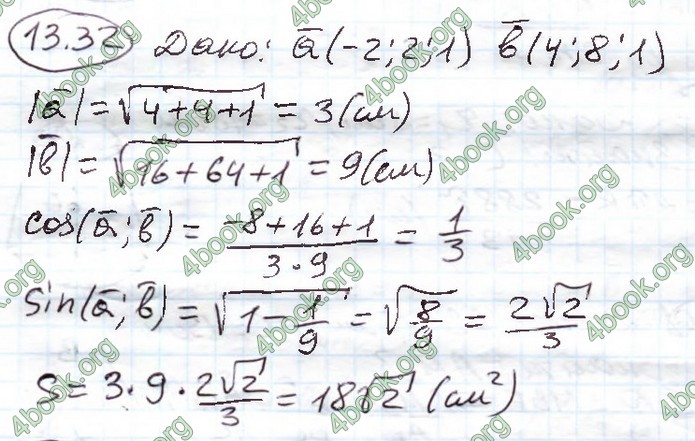 13.32 Дано: a̅(-2;2;1) b̅(4;8;1)
|a̅| = √(4+4+1) = 3(см)
|b̅| = √(16+64+1) = 9(см)
cos(a̅;b̅) = (-8+16+1)/(3·9) = 1/3
sin(a̅;b̅) = √(1-1/9) = √(8/9) = 2√2/3
S = 3·9·2√2/3 = 18√2 (см²)
4book.org